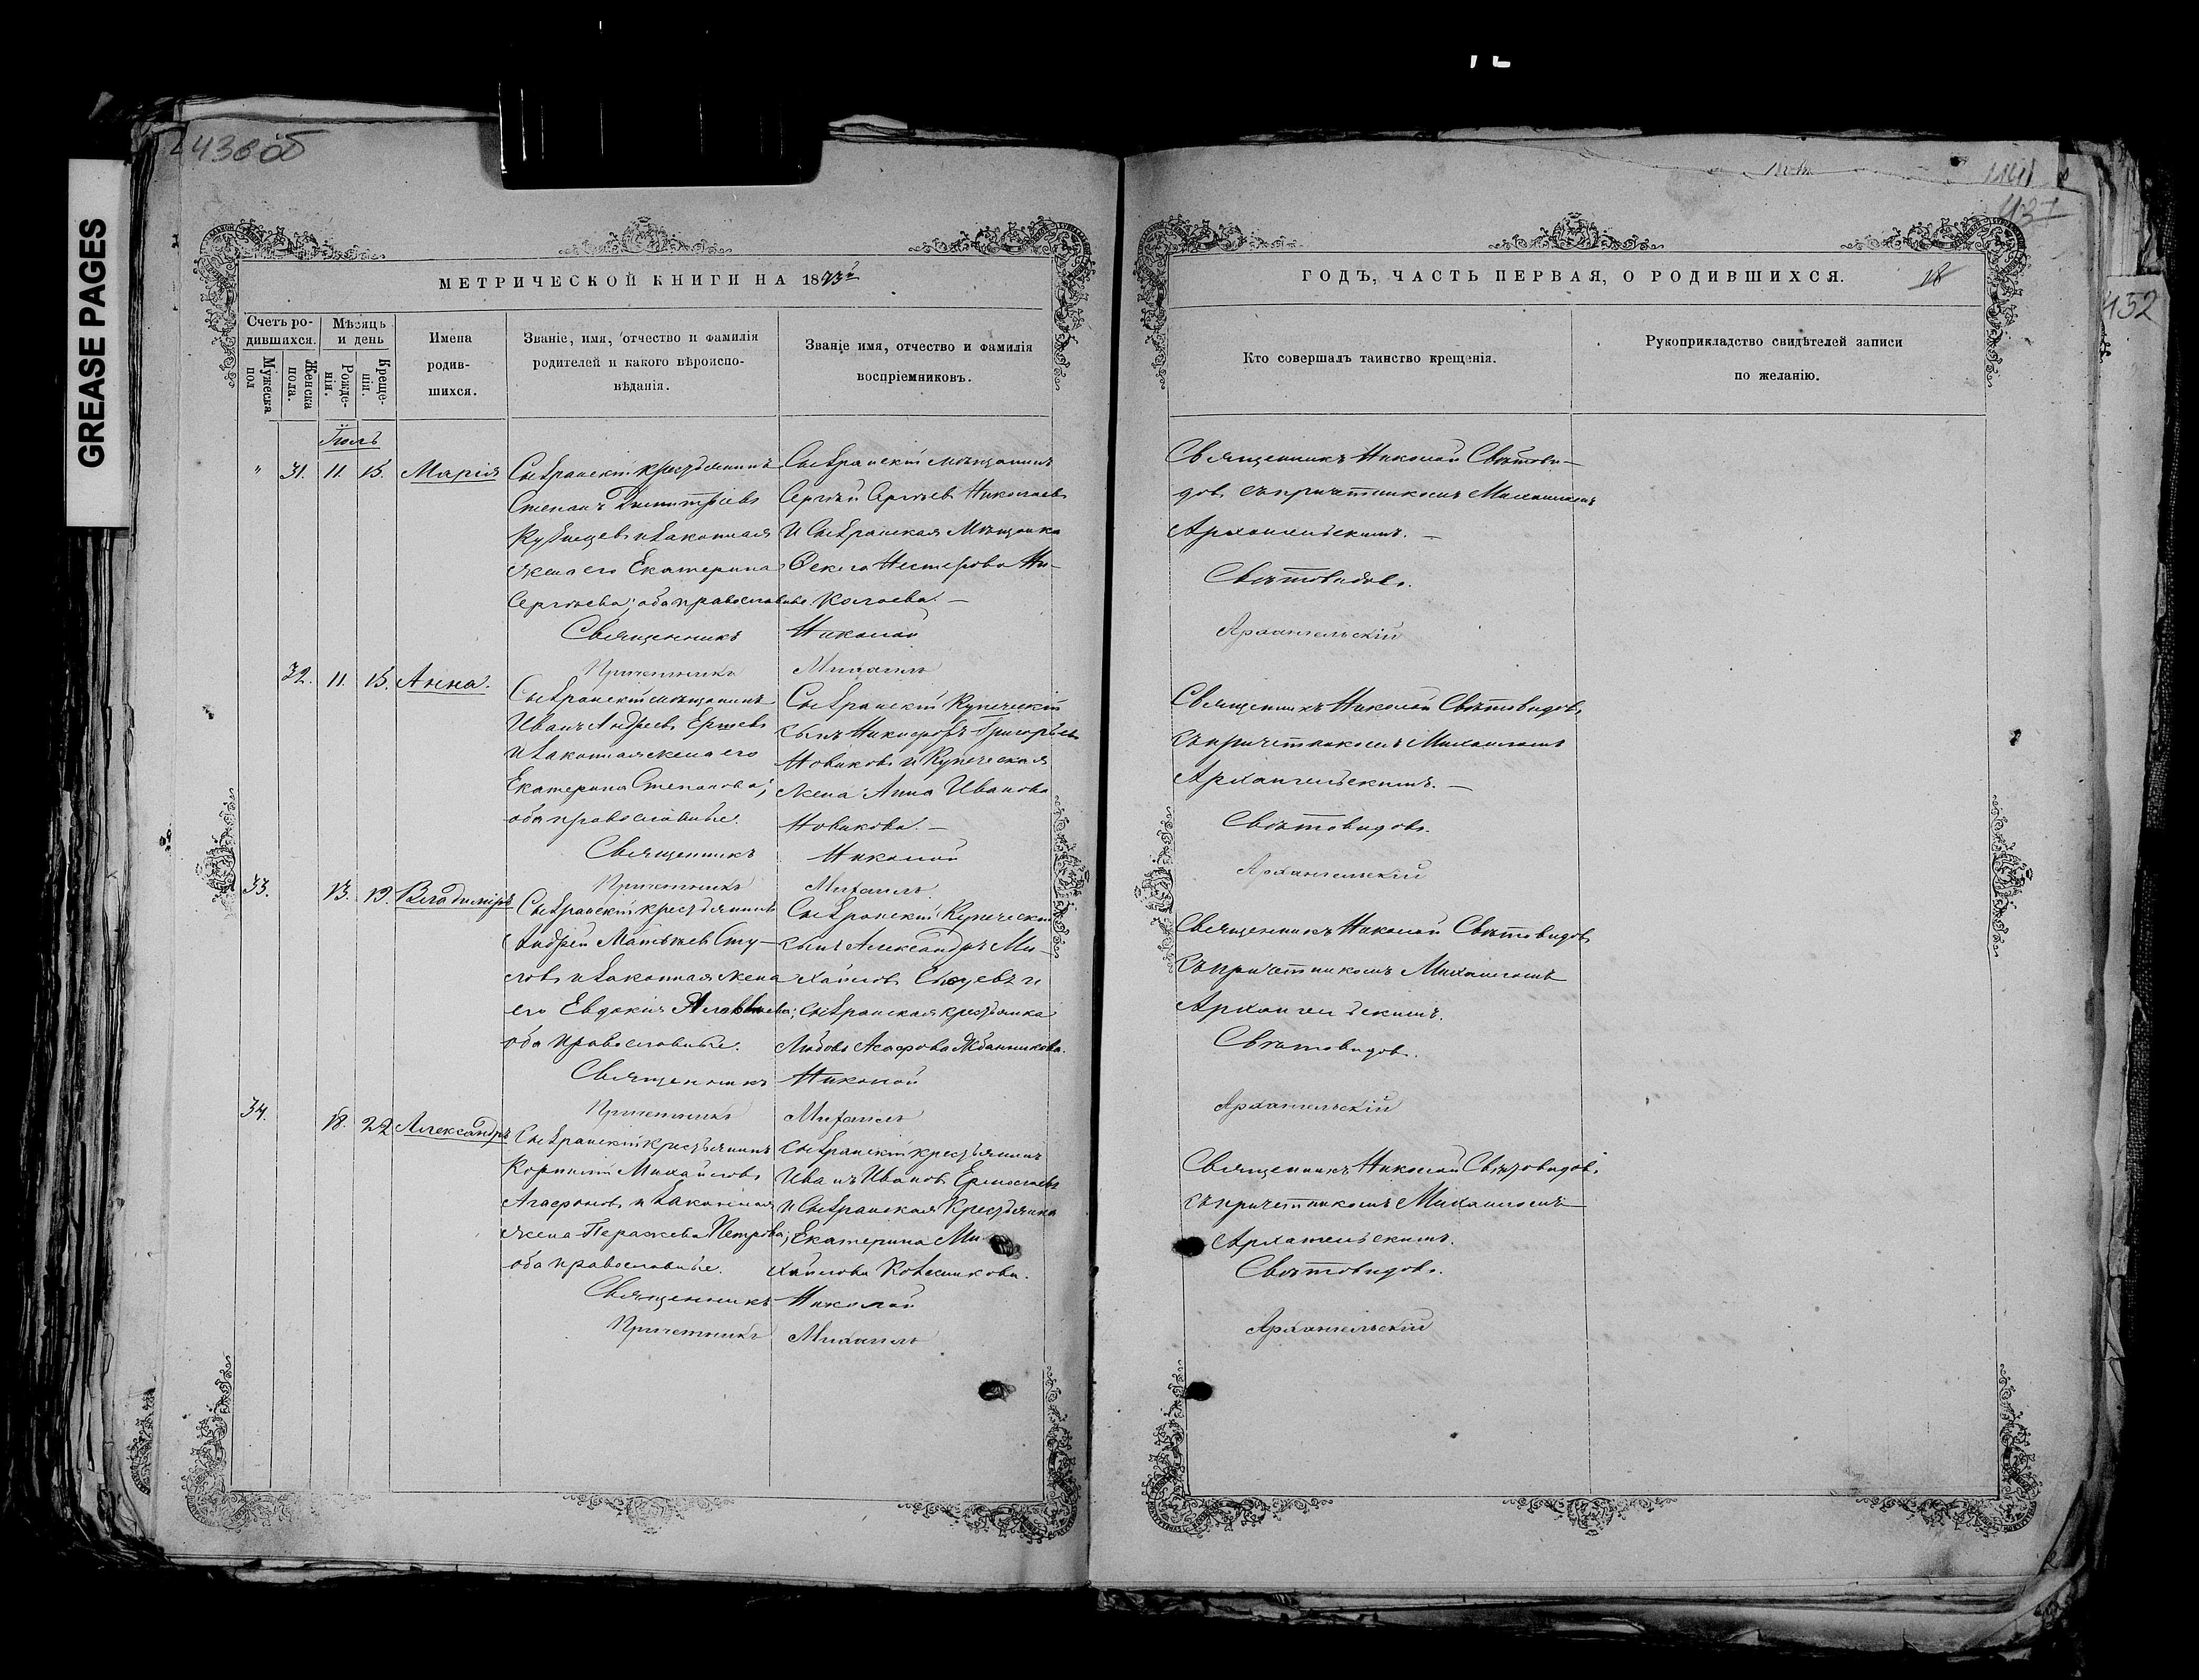 GREASE PAGES
МЕТРИЧЕСКОЙ КНИГИ НА 1873й
Счетъ ро-
дившихся.
Мужеска
пол
Женска
пола.
Мѣсяцъ
и день
Рожде-
нія.
Креще-
нія.
Имена
родив-
шихся.
Званіе, имя, отчество и фамилія
родителей и какого вѣроиспо-
вѣданія.
Званіе имя, отчество и фамилія
воспріемниковъ.
Іюль
" 31. 11. 15. Марія
Сызранскій крестьянинъ
Степанъ Димитріевъ
Кузнецовъ и законная
жена его Екатерина
Сергѣева; оба православные.
Сызранскій мѣщанинъ
Сергѣй Сергѣевъ Николаевъ
и Сызранская Мѣщанка
Ѳекла Нестерова Ни-
колаева. —
Священникъ Николай
Причетникъ Михаилъ
32. 11. 15. Анна.
Сызранскій мѣщанинъ
Иванъ Андреевъ Ершовъ
и законная жена его
Екатерина Степанова;
оба православные.
Сызранскій Купеческій
сынъ Никифоръ Григорьевъ
Новиковъ и Купеческая
жена Анна Иванова
Новикова. —
Священникъ Николай
Причетникъ Михаилъ
33. 13. 19. Владиміръ
Сызранскій крестьянинъ
Андрей Матвѣевъ Сту-
ловъ и законная жена
его Евдокія
оба православные.
Сызранскій Купеческій
сынъ Александръ Ми-
хайловъ и
Сызранская крестьянка
Любовь
Священникъ Николай
Причетникъ Михаилъ
34. 18. 22 Александръ
Сызранскій крестьянинъ
Корнилій Михайловъ
Агафоновъ и законная
жена Параскева Петрова;
оба православные.
Сызранскій крестьянинъ
Иванъ Ивановъ Ермолаевъ
и Сызранская Крестьянка
Екатерина Ми-
хайлова
Священникъ Николай
Причетникъ Михаилъ
ГОДЪ, ЧАСТЬ ПЕРВАЯ, О РОДИВШИХСЯ.
18
432
Кто совершалъ таинство крещенія.
Рукоприкладство свидѣтелей записи
по желанію.
Священникъ Николай Свѣтови-
довъ съ причетникомъ Михаиломъ
Архангельскимъ. —
Свѣтовидовъ.
Архангельскій
Священникъ Николай Свѣтовидовъ
съ причетникомъ Михаиломъ
Архангельскимъ. —
Свѣтовидовъ.
Архангельскій
Священникъ Николай Свѣтовидовъ
съ причетникомъ Михаиломъ
Архангельскимъ.
Свѣтовидовъ.
Архангельскій
Священникъ Николай Свѣтовидовъ
съ причетникомъ Михаиломъ
Архангельскимъ.
Свѣтовидовъ.
Архангельскій